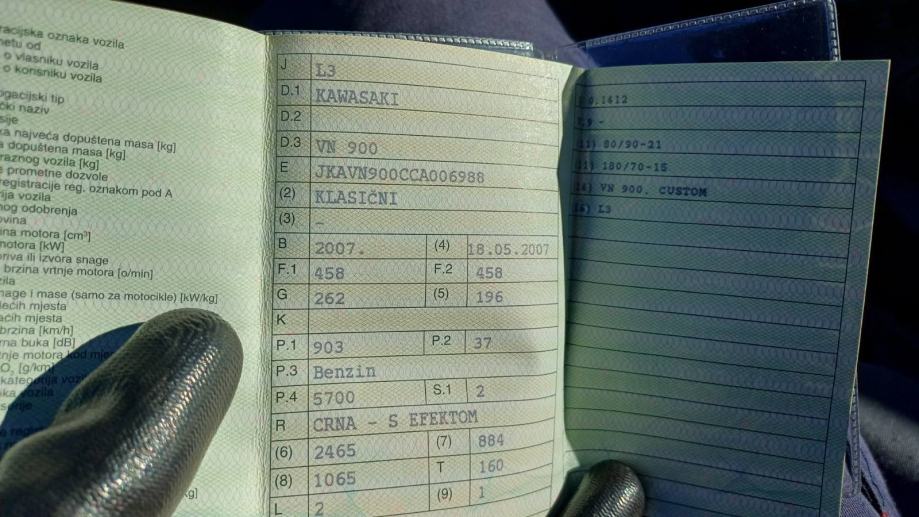 racijska oznaka vozila
metu od
o vlasniku vozila
o korisniku vozila
gacijski tip
čki naziv
sije
ka najveća dopuštena masa [kg]
a dopuštena masa [kg]
raznog vozila [kg]
e prometne dozvole
registracije reg. oznakom pod A
rija vozila
nog odobrenja
ovina
ina motora [cm³]
motora [kW]
oriva ili izvora snage
brzina vrtnje motora [o/min]
zila
nage i mase (samo za motocikle) [kW/kg]
dećih mjesta
aćih mjesta
brzina [km/h]
rna buka [dB]
tnje motora kod mje
O₂ [g/km]
kategorija vozi
ska vozila
kg]
J L3
D.1 KAWASAKI
D.2
D.3 VN 900
E JKAVN900CCA006988
(2) KLASIČNI
(3) –
B 2007. (4) 18.05.2007
F.1 458 F.2 458
G 262 (5) 196
K
P.1 903 P.2 37
P.3 Benzin
P.4 5700 S.1 2
R CRNA – S EFEKTOM
(6) 2465 (7) 884
(8) 1065 T 160
L 2 (9) 1
0.1612
9 -
11) 80/90-21
11) 180/70-15
14) VN 900. CUSTOM
L3